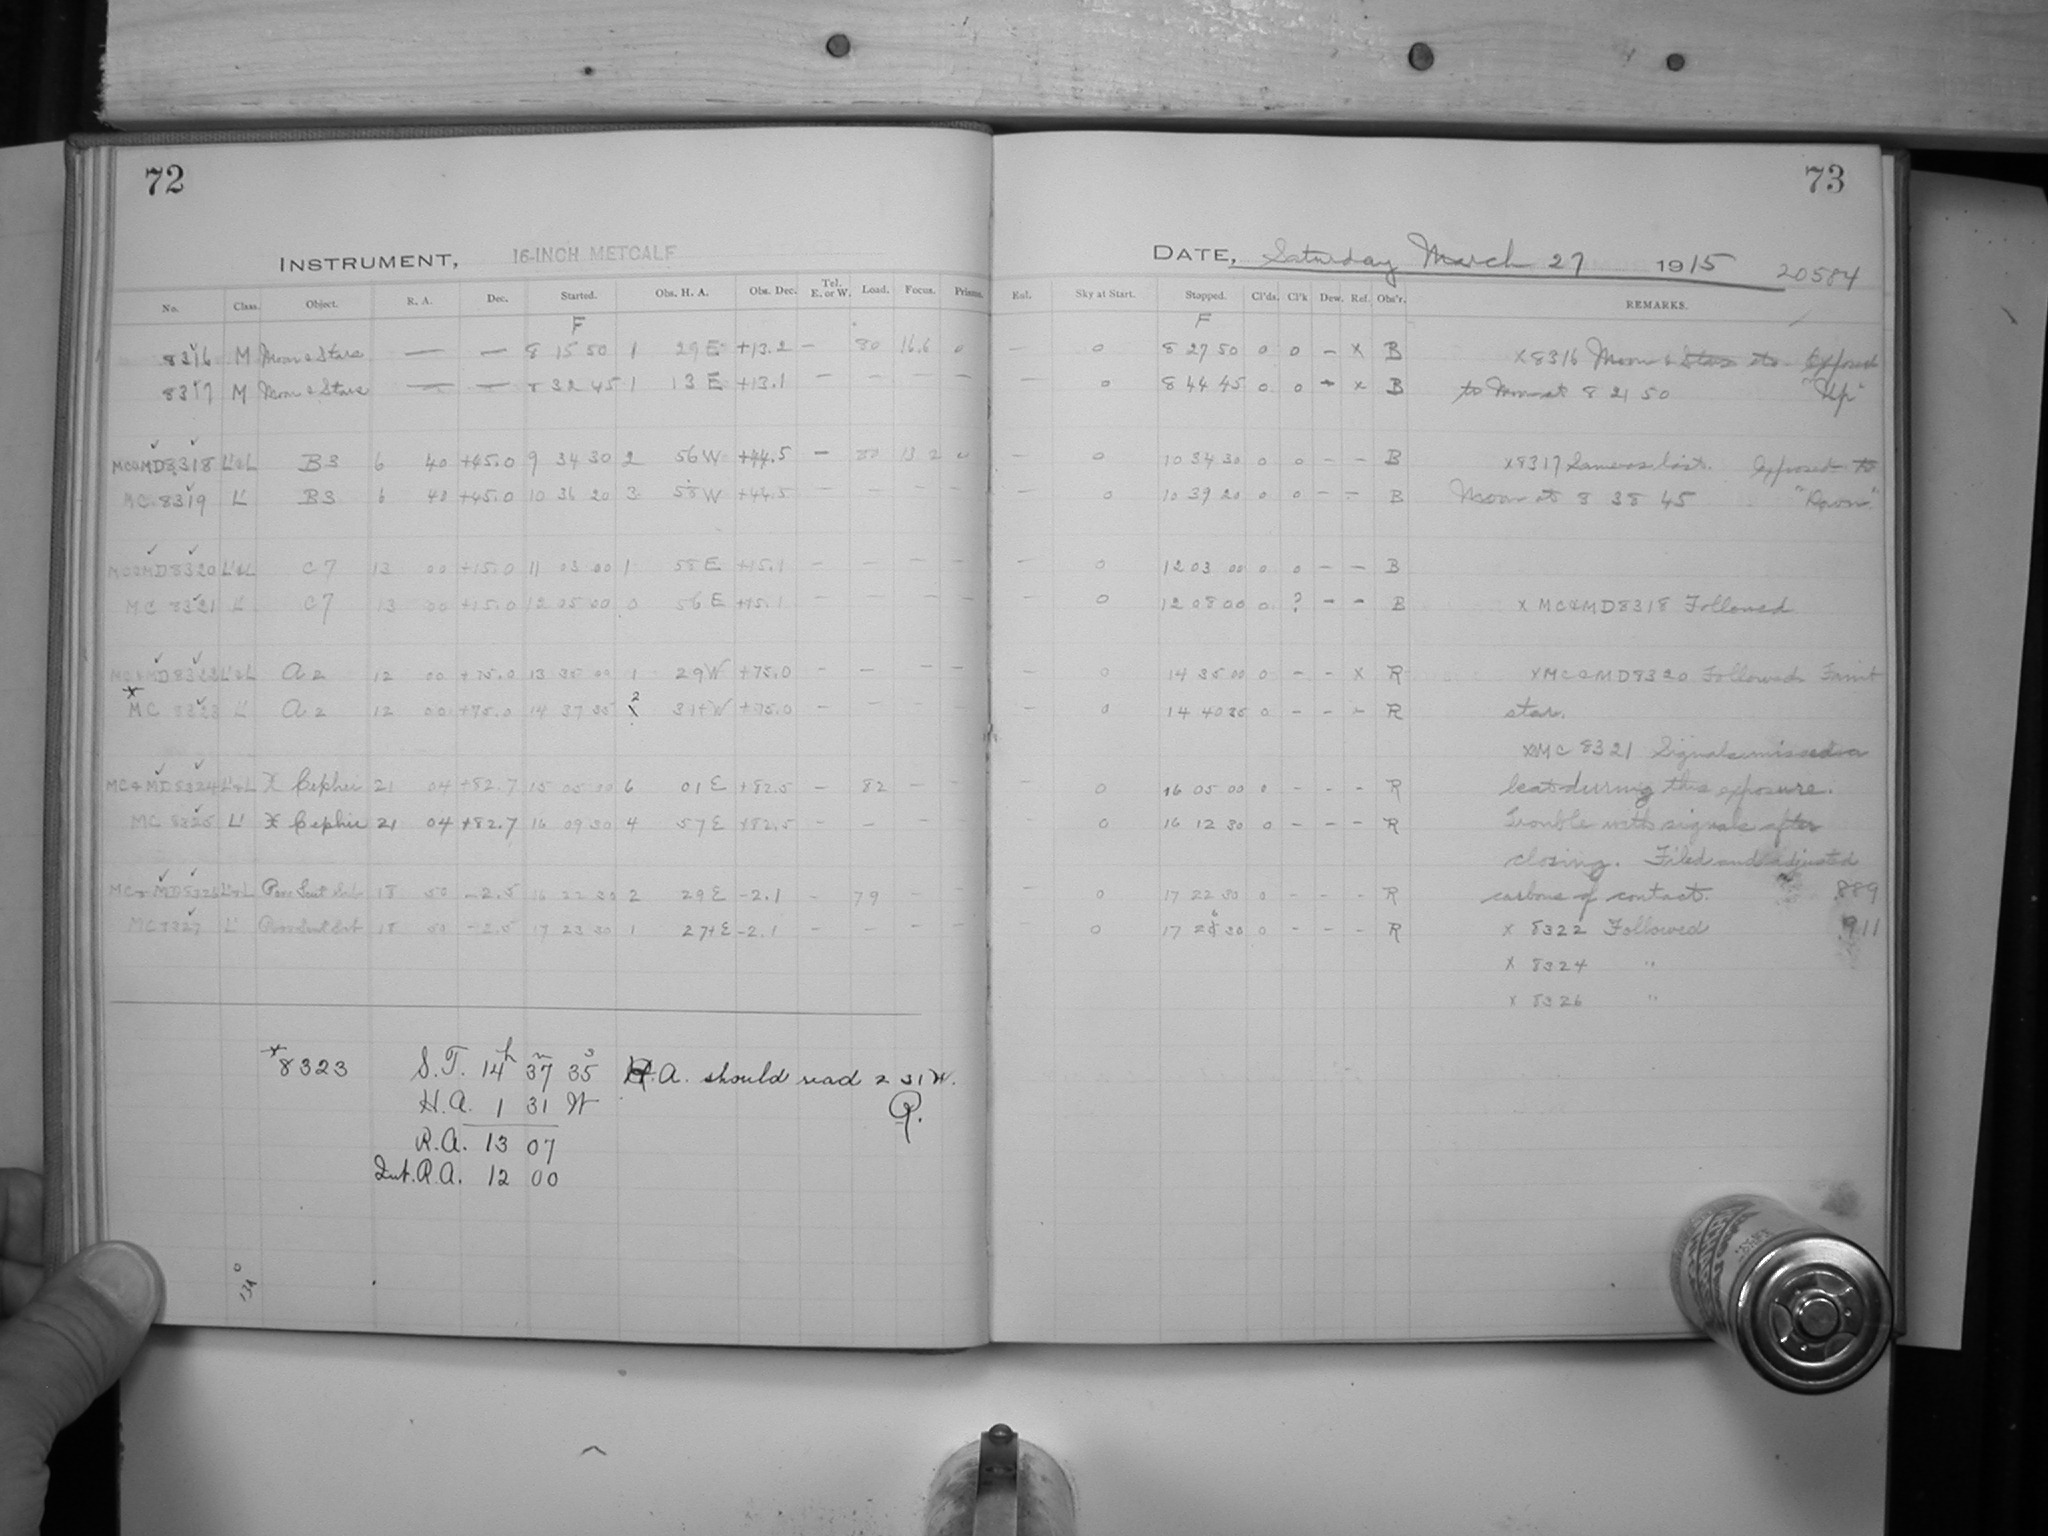 72
INSTRUMENT, 16-INCH METCALF
No. Class. Object. R. A. Dec. Started. Obs. H. A. Obs. Dec. Tel. E. or W. Load. Focus. Prisms.
F
8316 M Moon & Stars — — 8 15 50 1 29 E +13.2 — 80 16.6 0
8317 M Moon & Stars — — 8 32 45 1 13 E +13.1 — — — —
MC&MD8318 L'&L B3 6 40 +45.0 9 34 30 2 56 W +44.5 — 80 13 2 0
MC 8319 L' B3 6 40 +45.0 10 36 20 3 58 W +44.5 — — — —
MC&MD8320 L'&L C7 13 00 +15.0 11 03 00 1 58 E +15.1 — — — —
MC 8321 L' C7 13 00 +15.0 12 05 00 0 56 E +15.1 — — — —
MC&MD8322 L'&L A2 12 00 +75.0 13 35 00 1 29 W +75.0 — — — —
x MC 8323 L' A2 12 00 +75.0 14 37 35 2 31+W +75.0 — — — —
MC&MD8324 L'&L X Cephei 21 04 +82.7 15 05 00 6 01 E +82.5 — 82 — —
MC 8325 L' X Cephei 21 04 +82.7 16 09 30 4 57 E +82.5 — — — —
MC&MD8326 L'&L 18 50 -2.5 16 22 30 2 29 E -2.1 — 79 — —
MC 8327 L' 18 50 -2.5 17 23 30 1 27+E -2.1 — — — —
x8323 S.T. 14h 37m 35s H.A. should read 2 31 W.
H.A. 1 31 W R.
R.A. 13 07
Int. R.A. 12 00
73
DATE, Saturday March 27 1915 20584
Ral. Sky at Start. Stopped. Cl'ds. Cl'k Dew. Ref. Obs'r. REMARKS.
F
— 0 8 27 50 0 0 — x B x8316 Moon & Stars etc. Exposed
— 0 8 44 45 0 0 — x B to Moon at 8 21 50 "Up"
— 0 10 34 30 0 0 — — B x8317 Same as last. Exposed to
— 0 10 39 20 0 0 — — B Moon at 8 38 45 "Down"
— 0 12 03 00 0 0 — — B
— 0 12 08 00 0 ? — — B x MC&MD8318 Followed
— 0 14 35 00 0 — — x R xMC&MD8320 Followed Faint
— 0 14 40 35 0 — — — R star.
xMC 8321 Signals missed a
0 16 05 00 0 — — — R beat during this exposure.
0 16 12 30 0 — — — R Trouble with signals after
closing. Filed and adjusted
0 17 22 30 0 — — — R carbons of contact. 889
0 17 26 30 0 — — — R x 8322 Followed 911
x 8324 "
x 8326 "